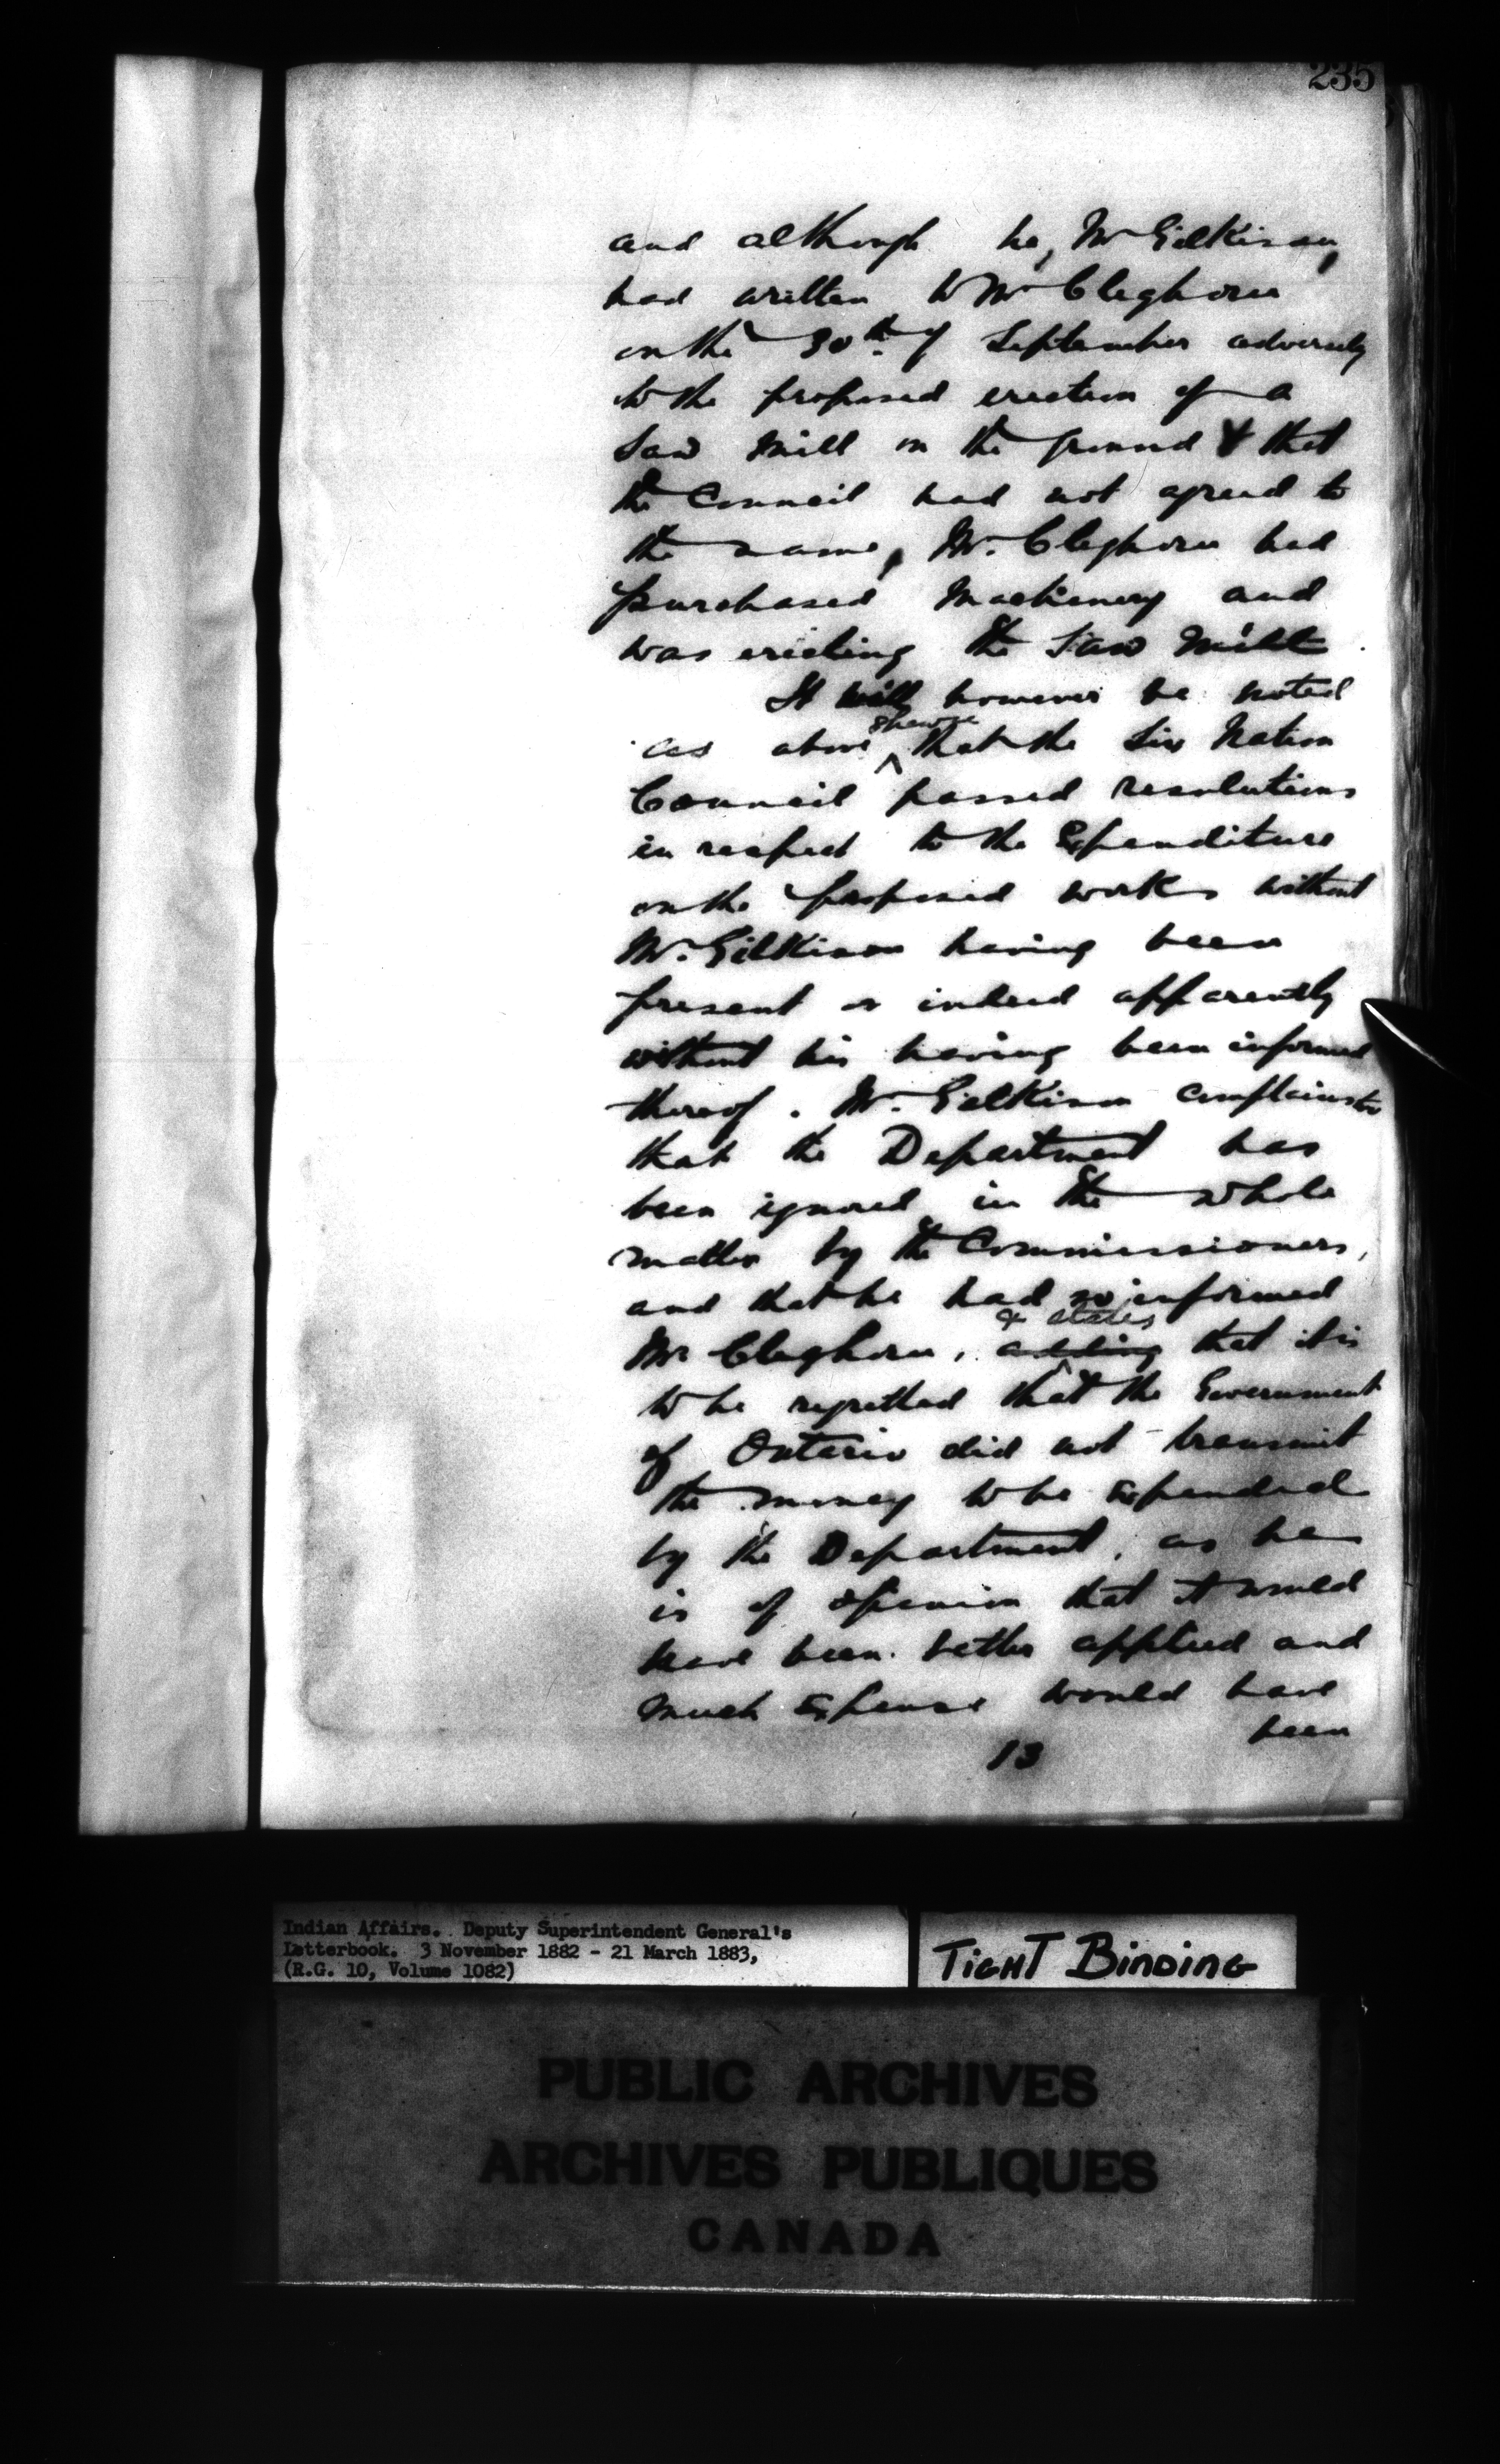 235
and although he, Mr Gilkison,
had written to Mr Cleghorn
on the 30th. of September adversely
to the proposed erection of a
Saw Mill on the ground & that
the Council had not agreed to
the same, Mr. Cleghorn had
purchased Machinery and
was erecting the Saw Mill.
It will however be noted
as above shewn that the Six Nation
Council passed resolutions
in respect to the Expenditure
on the proposed works without
Mr. Gilkison having been
present or indeed apparently
without his having been informed
thereof. Mr. Gilkison complains
that the Department has
been ignored in the whole
matter by the Commissioners,
and that he had so informed
& states
Mr Cleghorn, adding that it is
to be regretted that the Government
of Ontario did not transmit
the money to be Expended
by the Department, as he
is of opinion that it would
have been better applied and
much Expense would have
been
13
Indian Affairs. Deputy Superintendent General's
Letterbook. 3 November 1882 - 21 March 1883,
(R.G. 10, Volume 1082)
TIGHT BINDING
PUBLIC ARCHIVES
ARCHIVES PUBLIQUES
CANADA